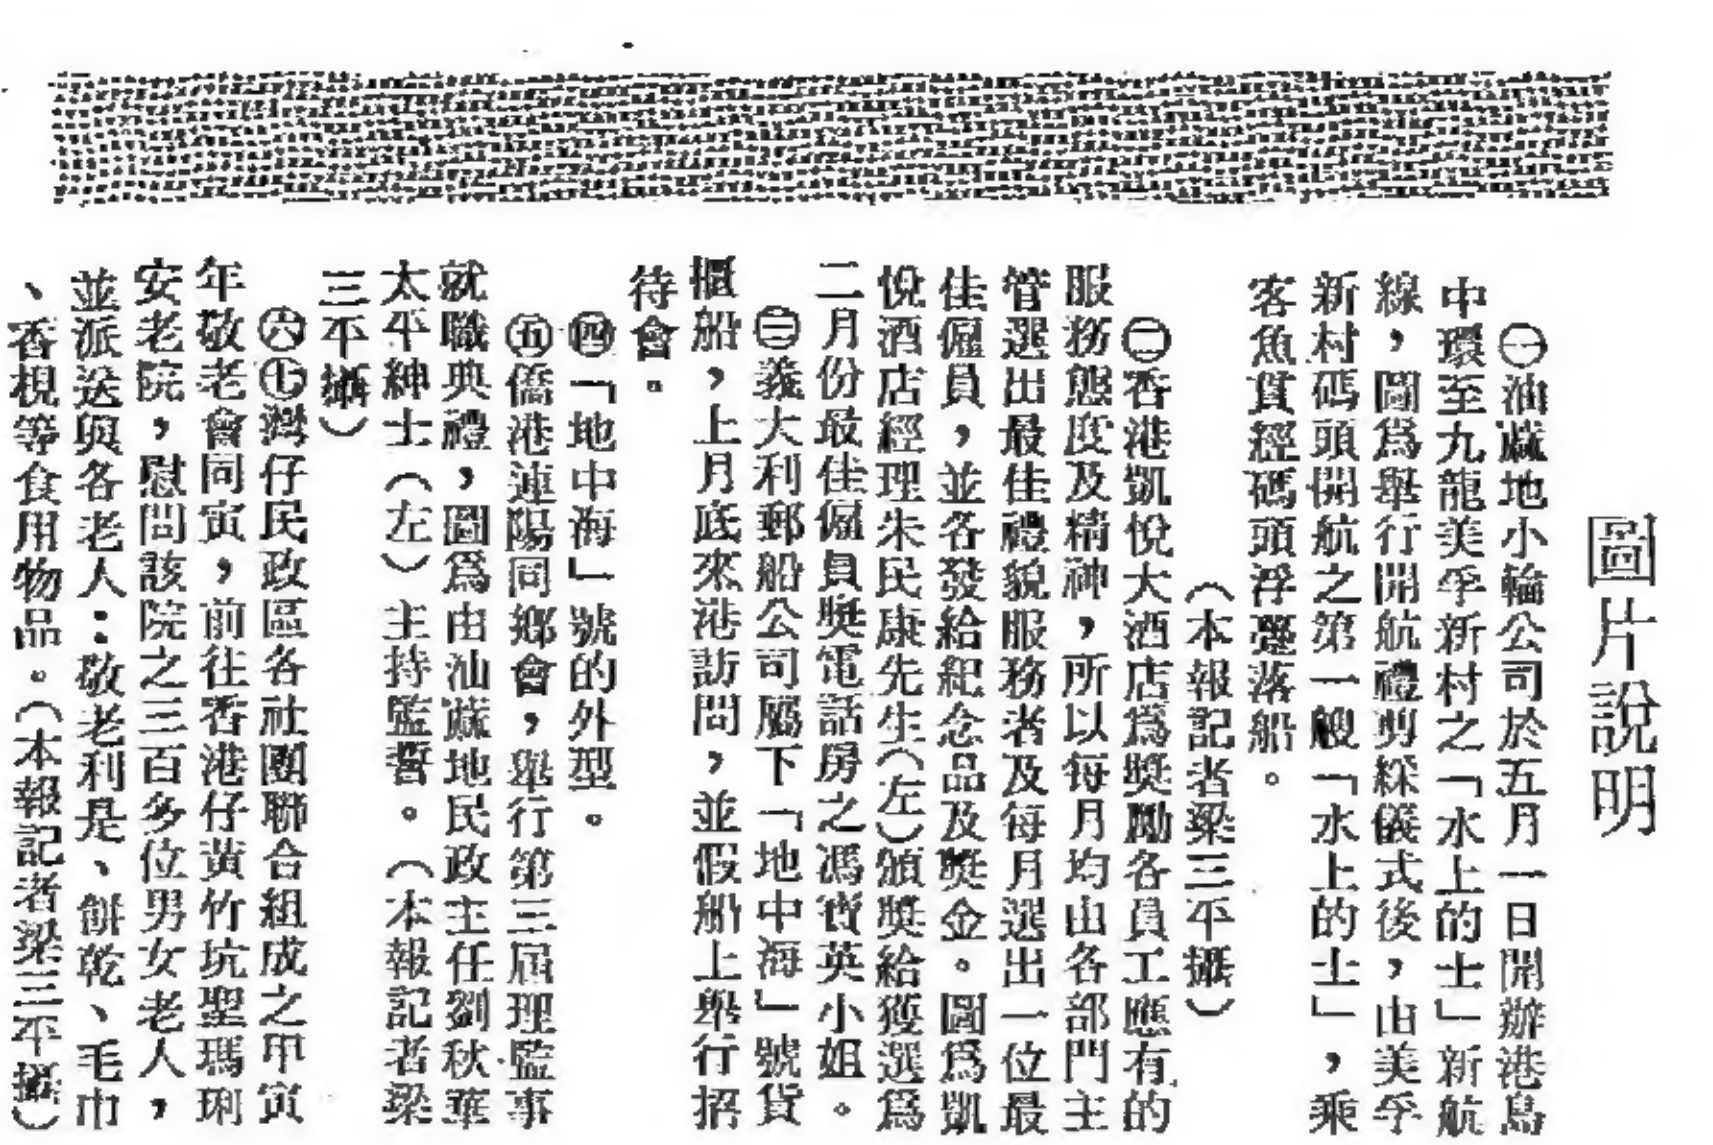 圖片說明
㊀油蔴地小輪公司於五月一日開辦港島
中環至九龍美孚新村之「水上的士」新航
線，圖爲舉行開航禮剪綵儀式後，由美孚
新村碼頭開航之第一艘「水上的士」，乘
客魚貫經碼頭浮躉落船。
（本報記者梁三平攝）
㊁香港凱悅大酒店爲獎勵各員工應有的
服務態度及精神，所以每月均由各部門主
管選出最佳禮貌服務者及每月選出一位最
佳僱員，並各發給紀念品及獎金。圖爲凱
悅酒店經理朱民康先生（左）頒獎給獲選爲
二月份最佳僱員獎電話房之馮寶英小姐。
㊂義大利郵船公司屬下「地中海」號貨
櫃船，上月底來港訪問，並假船上舉行招
待會。
㊃「地中海」號的外型。
㊄僑港連陽同鄉會，舉行第三屆理監事
就職典禮，圖爲由油蔴地民政主任劉秋華
太平紳士（左）主持監誓。（本報記者梁
三平攝）
㊅㊆灣仔民政區各社團聯合組成之甲寅
年敬老會同寅，前往香港仔黃竹坑聖瑪琍
安老院，慰問該院之三百多位男女老人，
並派送與各老人：敬老利是、餅乾、毛巾
、香梘等食用物品。（本報記者梁三平攝）